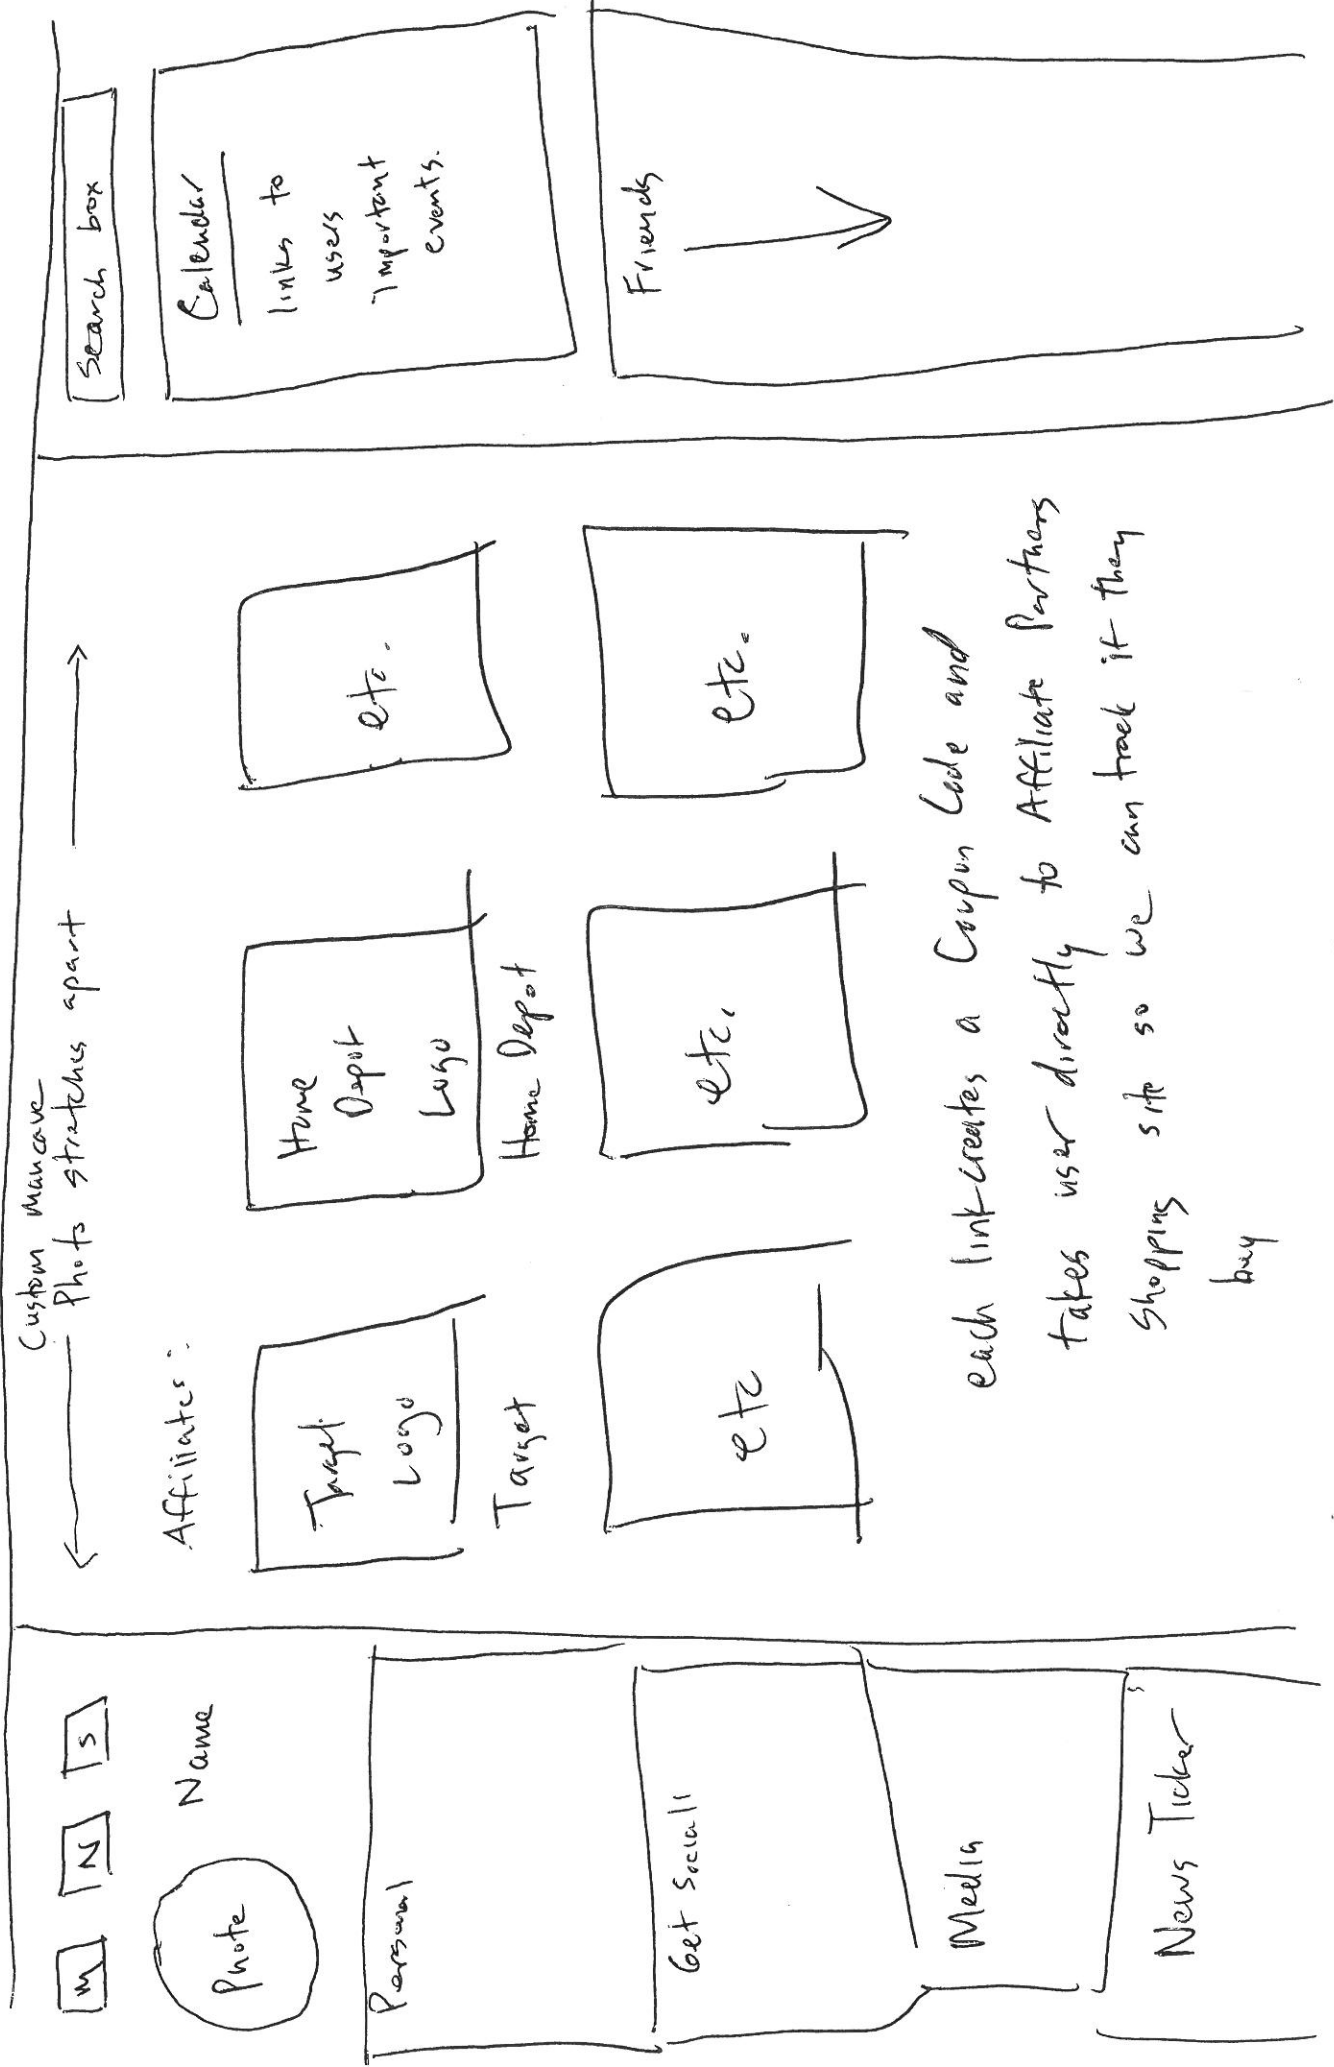 M N S
Photo
Name
Personal
Get Social!
Media
News Ticker
Custom Mancave
Photo stretches apart
Affiliates:
Target
Logo
Target
Home
Depot
Logo
Home Depot
etc.
etc
etc.
etc.
each link creates a Coupon Code and
takes user directly to Affiliate Partners
Shopping site so we can track if they
buy
Search box
Calendar
links to
users
important
events.
Friends